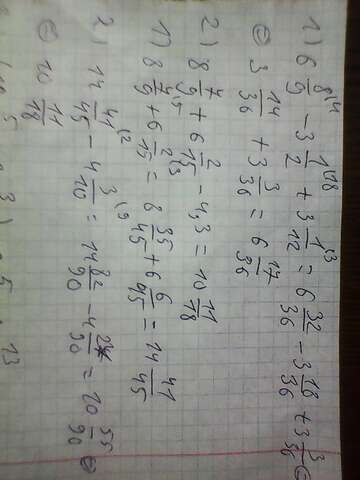 1) 6 8/9 \4 - 3 1/2 \18 + 3 1/12 \3 = 6 32/36 - 3 18/36 + 3 3/36 =
= 3 14/36 + 3 3/36 = 6 17/36
2) 8 7/9 + 6 2/15 - 4,3 = 10 11/18
1) 8 7/9 \5 + 6 2/15 \3 = 8 35/45 + 6 6/45 = 14 41/45
2) 14 41/45 \2 - 4 3/10 \9 = 14 82/90 - 4 27/90 = 10 55/90 =
= 10 11/18